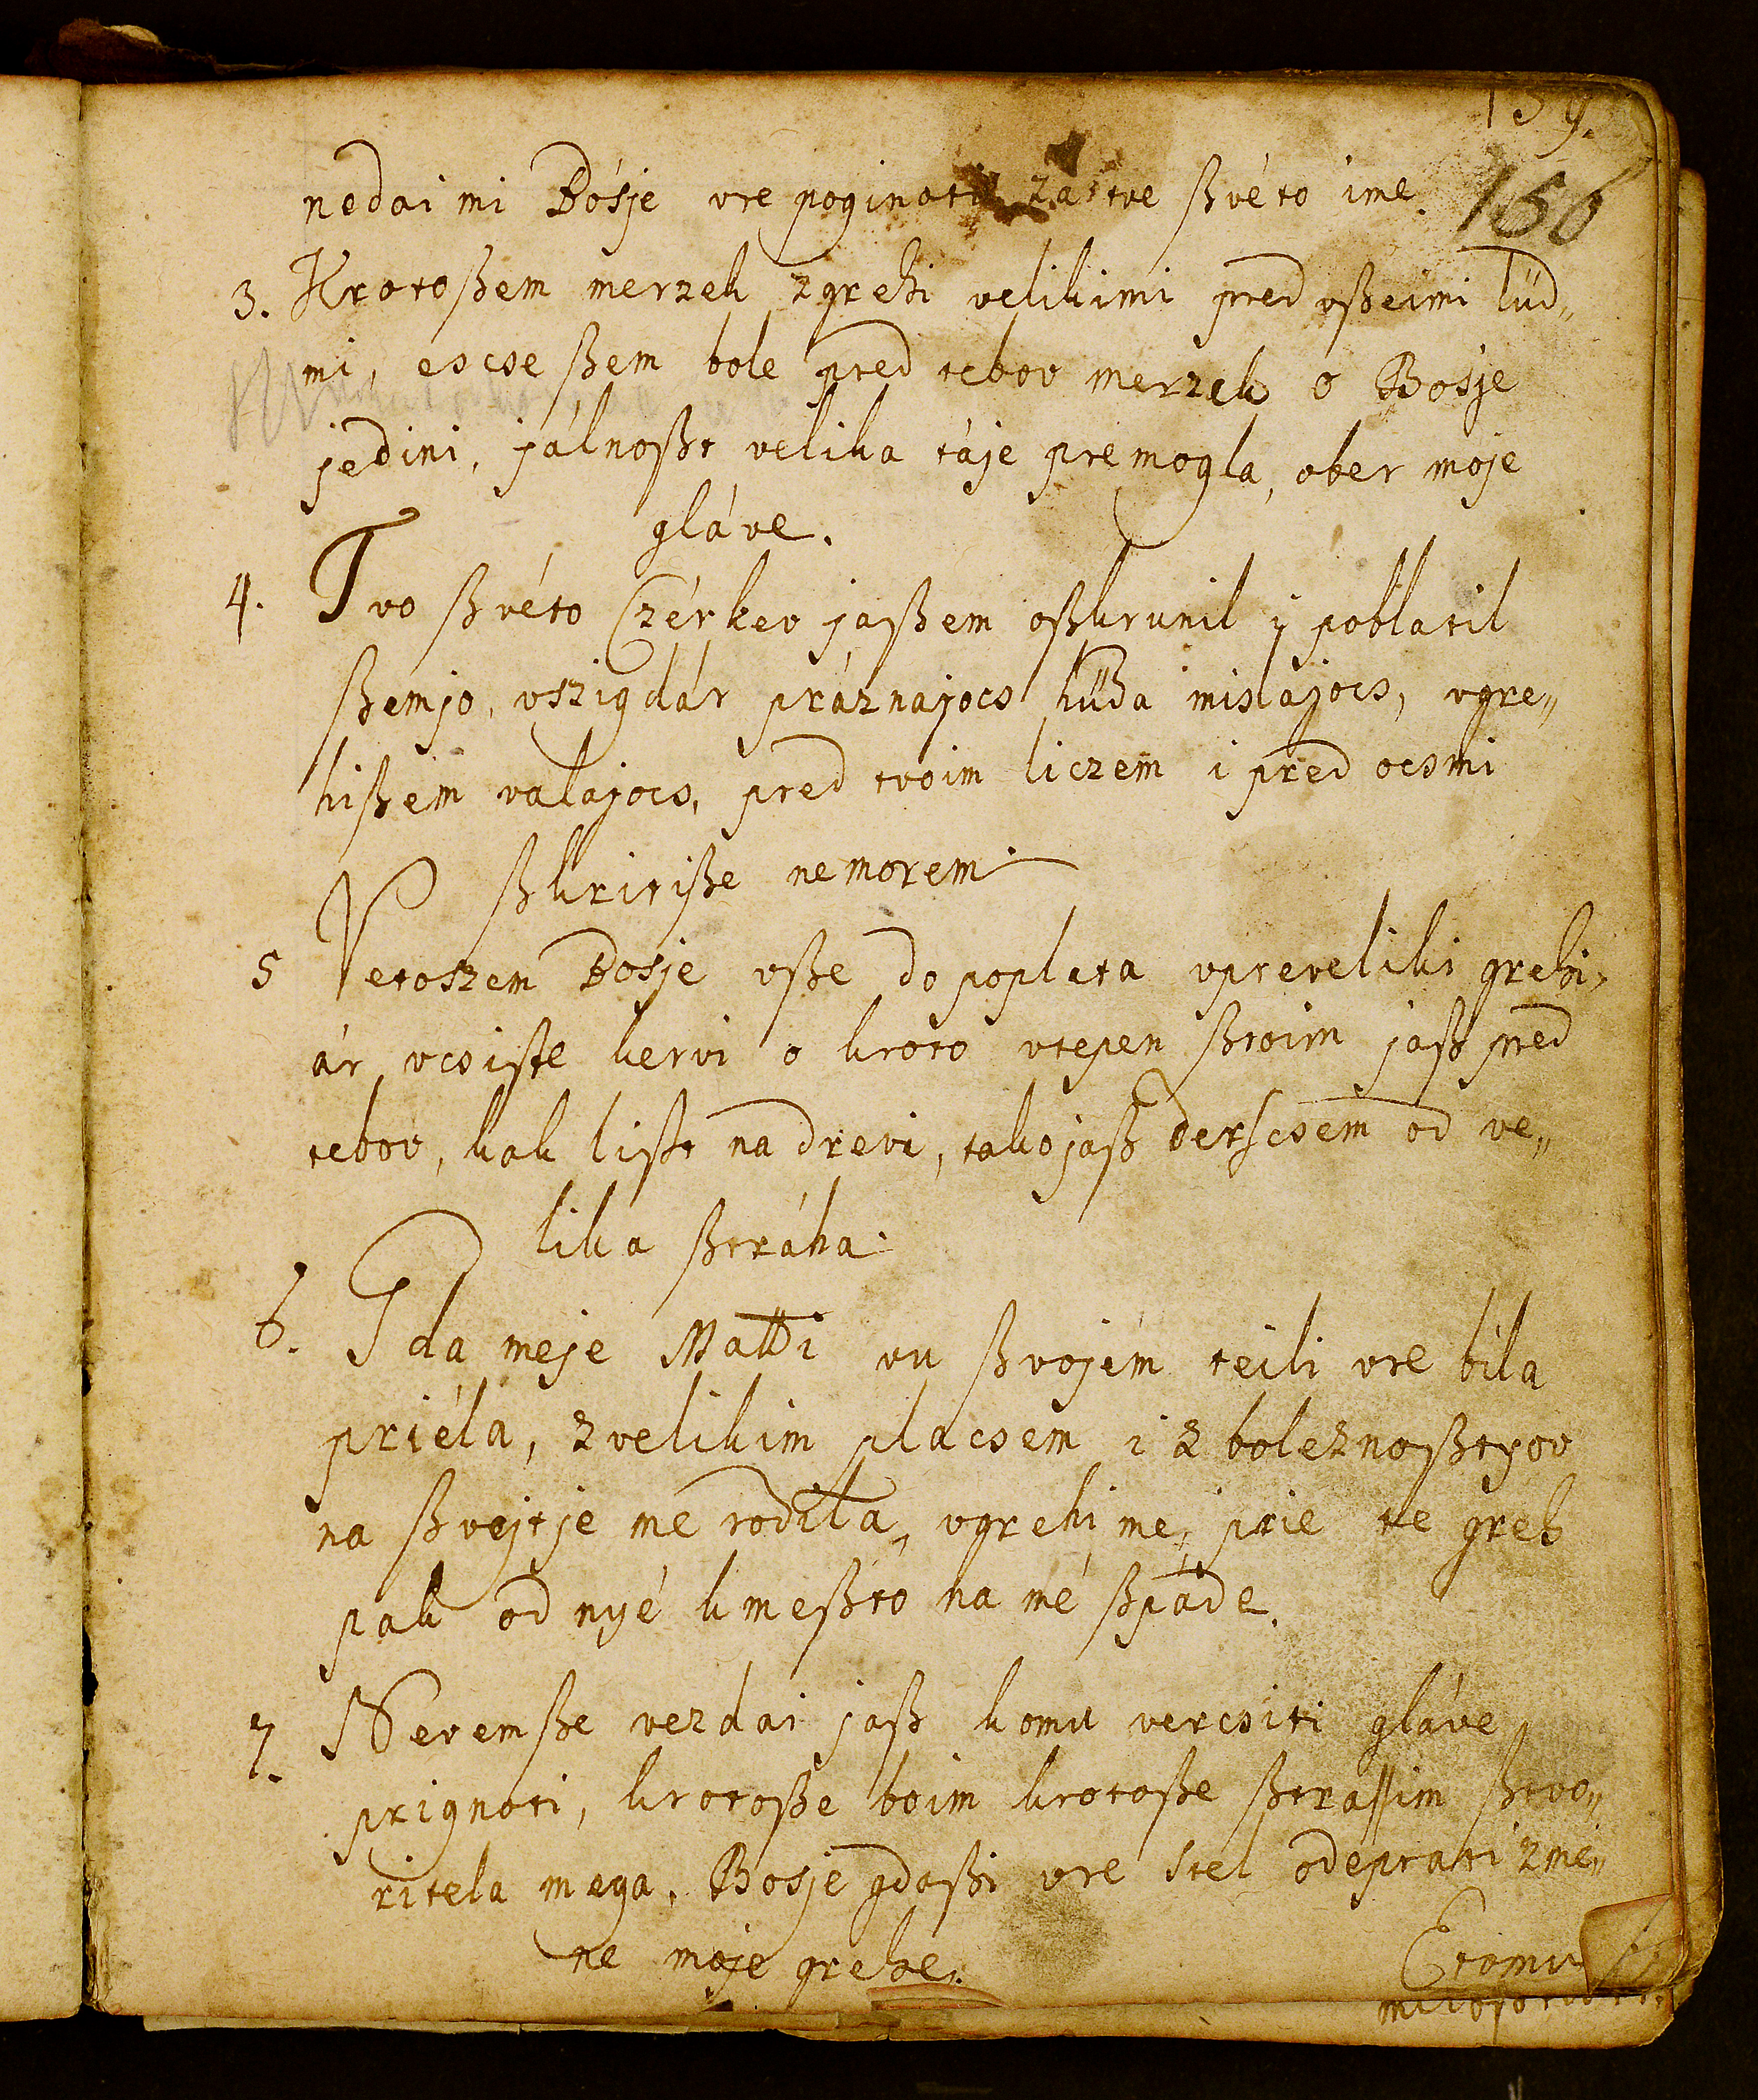 159.
156
nedai mi Bósje vre poginoti zá tve ßvéto ime.
3. Krotoßem merzek z grehi velikimi pred vßeimi lüd„
mi, escse ßem bole pred tebov merzek o Bosje
jedini, jálnoßt velika táje premogla, ober moje
gláve.
4. Tvo ßvéto Czérkev jaßem oßkrunil ÿ poblatil
ßemjo, vszigdár práznajocs hüda mislajocs, vgre„
hißem valajocs, pred tvoim liczem i pred ocsmi
ßkritiße nemorem.
5 Vetoszem Bosje vße do poplata vpreveliki grehi,
ár vcsiste kervi o kroto vtepen ßtoim jaß pred
tebov, kak lißt na drevi, tako jaß derscsem od ve„
lika ßtráha.
6. I da meje Matti vu ßvojém teili vre bila
priéla, z velikim placsem i z boleznoßtyov
na ßvejtje me rodila, vgrehi me, prie te greh
pak od nyé kmeßto na mé ßpáde.
7. Neremße vezdai jaß komu vercsiti gláve
prignoti, krotoße boim krotoße ßtrassim ßtvo„
ritela mega, Bosje gdaßi vre stel odeprati z mé„
ne moje grehe.
Etomu